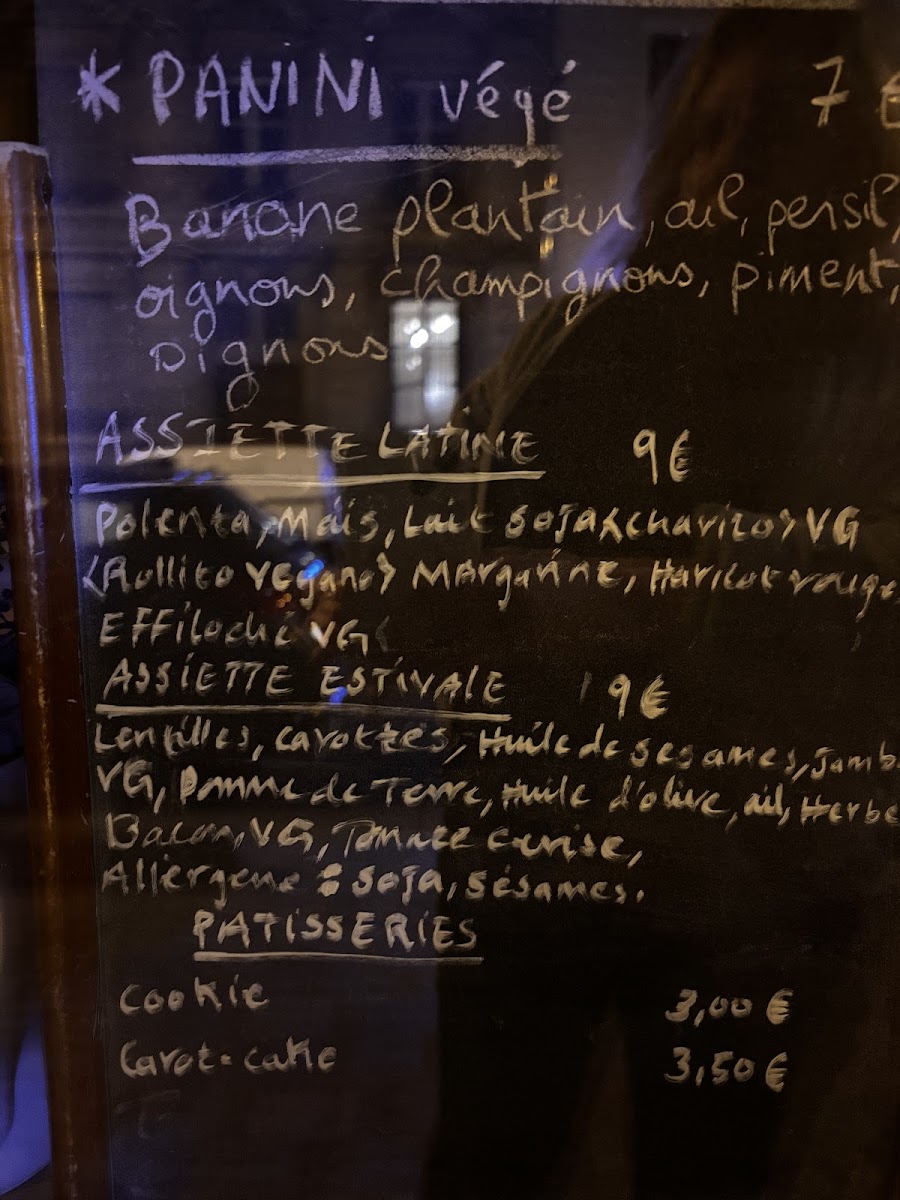 * PANINI végé 7 €
Banane plantain, ail, persil,
oignons, champignons, piment,
oignons
ASSIETTE LATINE 9€
Polenta, Maïs, Lait soja <chorizo> VG
<Rollito vegano> MARgarine, Haricot rouge,
EFFiloché VG
ASSIETTE ESTIVALE 9€
Lentilles, carottes, Huile de sesames, Jamb
VG, Pomme de Terre, Huile d'olive, ail, Herbe
Bacon, VG, Tomate cerise,
Allergene : soja, sésames.
PATISSERIES
Cookie 3,00 €
Carot-cake 3,50 €